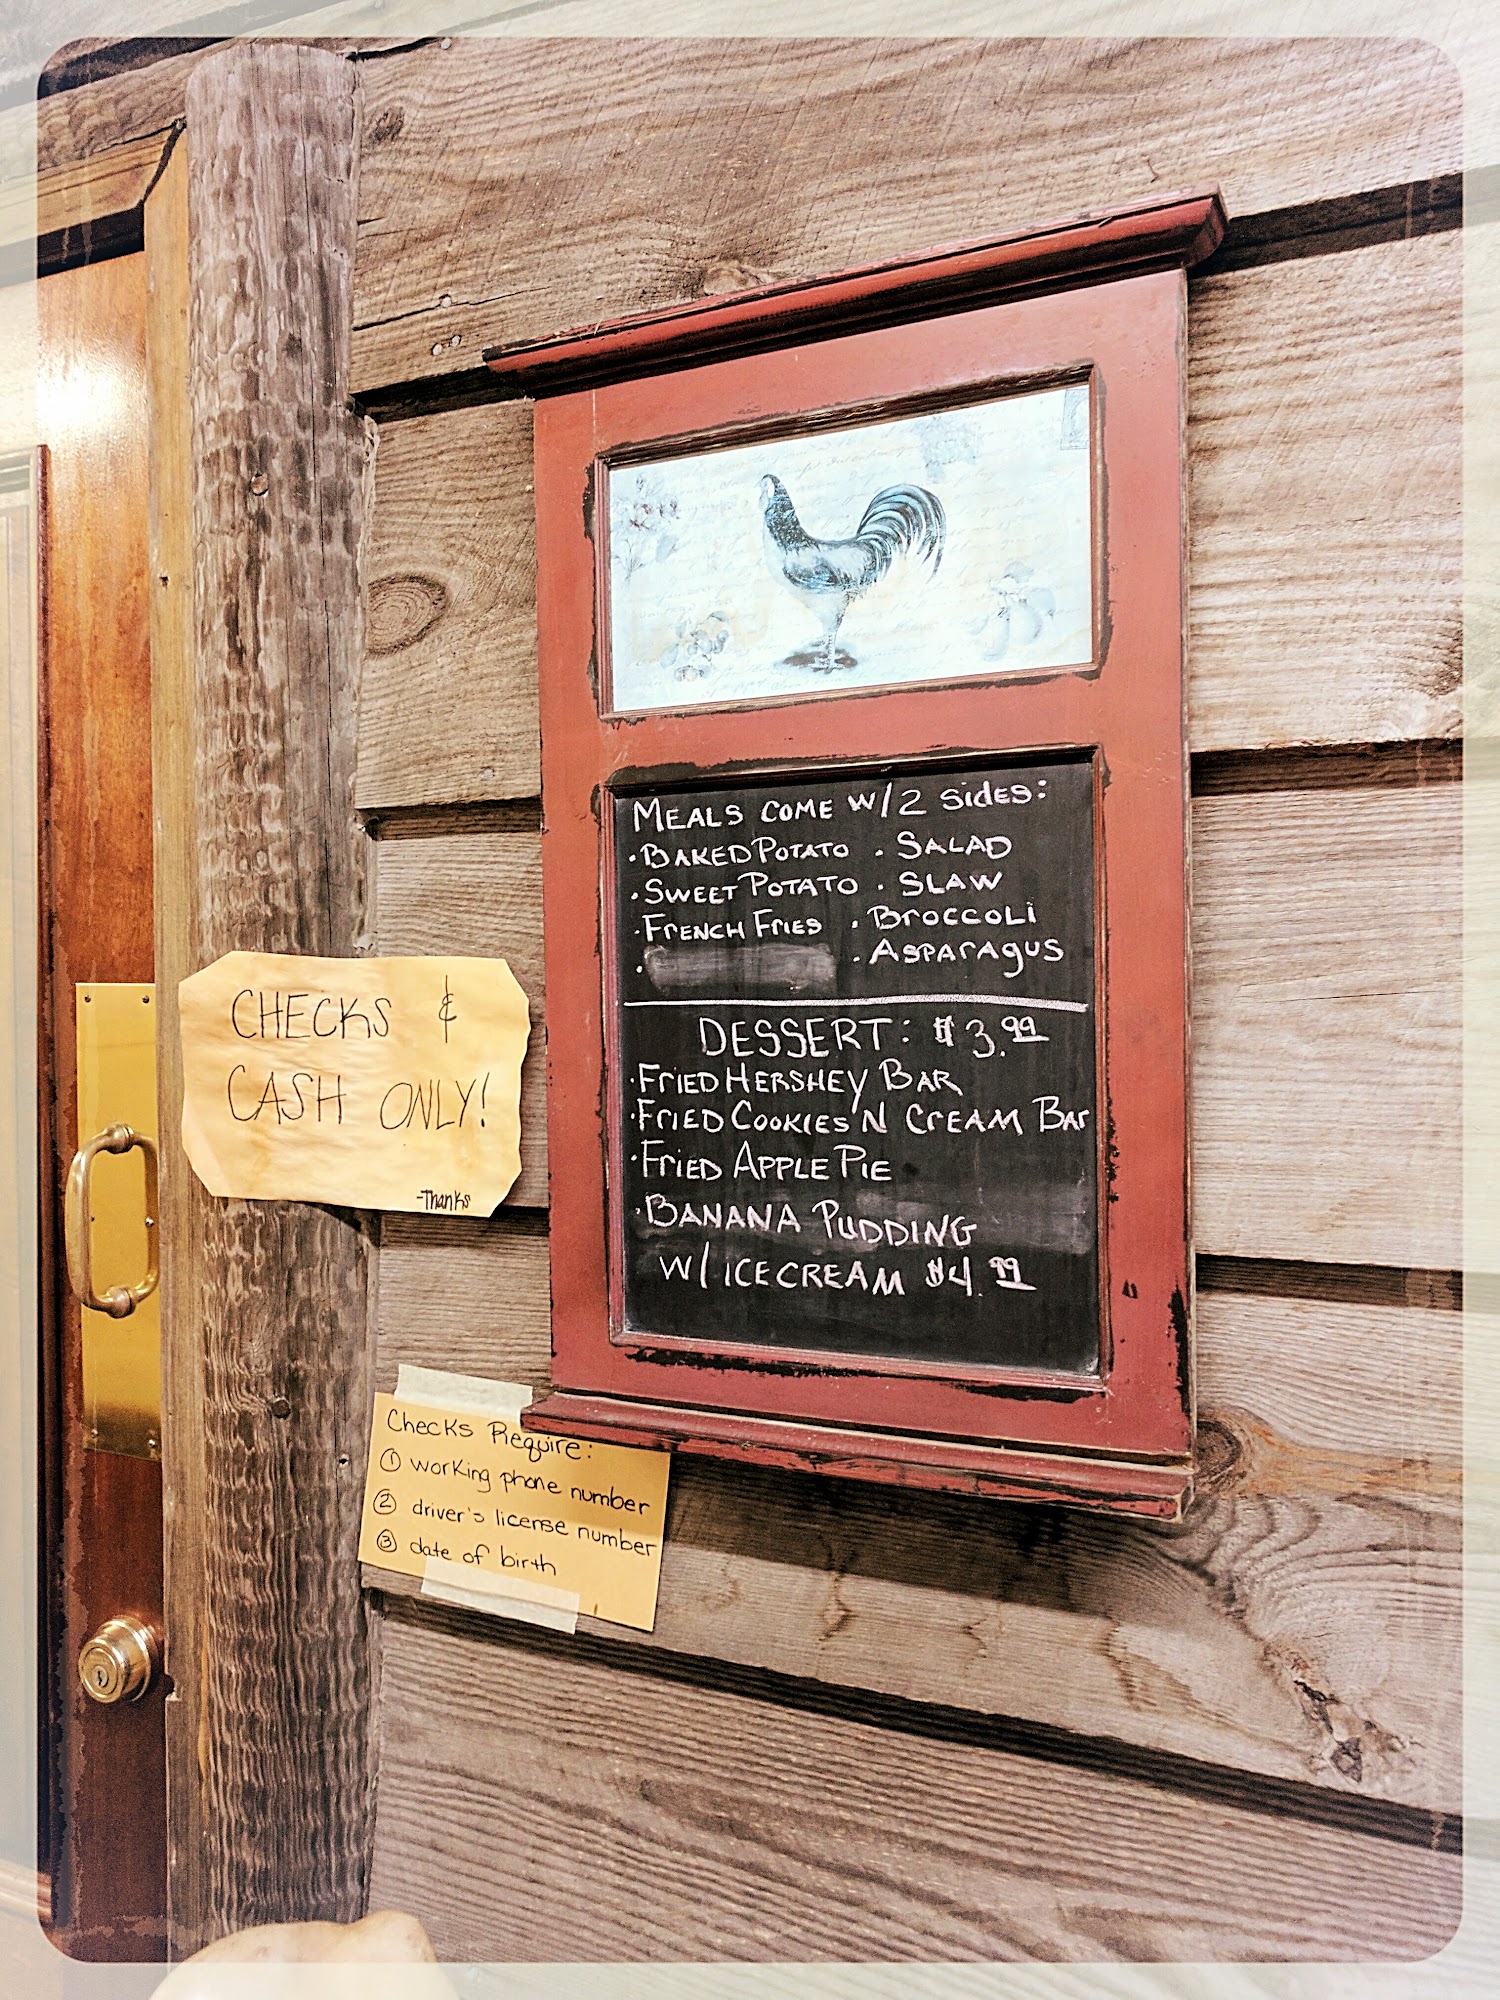 MEALS COME W/2 SIDES:
· BAKED POTATO · SALAD
· SWEET POTATO · SLAW
· FRENCH FRIES · BROCCOLI
· · ASPARAGUS
DESSERT: $3.99
· FRIED HERSHEY BAR
· FRIED COOKIES N CREAM BAR
· FRIED APPLE PIE
· BANANA PUDDING
W/ ICE CREAM $4.99
CHECKS &
CASH ONLY!
-Thanks
Checks Require:
① working phone number
② driver's license number
③ date of birth